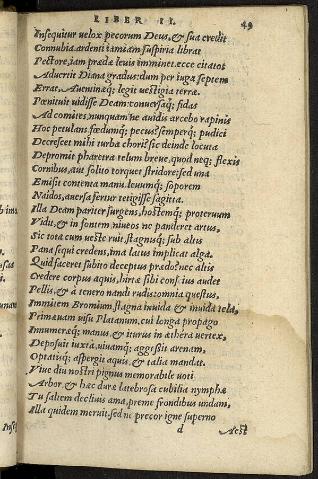 LIBER II. 49
Insequitur velox pecorum Deus, & sua credit
Connubia. ardenti iamiam suspiria librat
Pectore, iam præda leuis imminet. ecce citatos
Aduertit Diana gradus: dum per iuga septem
Errat, Auentinæq; legit uestigia terræ.
Pœnituit uidisse Deam: conuersaq; fidas
Ad comites, nunquam ne auidis arcebo rapinis
Hoc petulans fœdumq; pecus? semperq; pudici
Decrescet mihi turba chori? sic deinde locuta
Depromit pharetra telum breue, quod neq; flexis
Cornibus, aut solito torquet stridore: sed una
Emisit contenta manu. leuumq; soporem
Naidos auersa fertur tetigisse sagitta.
Illa Deam pariter surgens, hostemq; proteruum
Vidit, & in fontem niueos ne panderet artus,
Sic tota cum ueste ruit, stagnisq; sub altis
Pana sequi credens, ima latus implicat alga.
Quid faceret subito deceptus prædo? nec altis
Credere corpus aquis, hirtæ sibi conscius audet
Pellis, & à tenero nandi rudis: omnia questus,
Immitem Bromium, stagna inuida, & inuida tela,
Primæuam uisu Platanum, cui longa propago
Innumeræq; manus, & iturus in æthera uertex,
Deposuit iuxtà, uiuamq; aggessit arenam,
Optatisq; aspergit aquis, & talia mandat.
Viue diu nostri pignus memorabile uoti
Arbor, & hæc duræ latebrosa cubilia nymphæ
Tu saltem decliuis ama, preme frondibus undam,
Illa quidem meruit, sed ne precor igne superno
d Aest